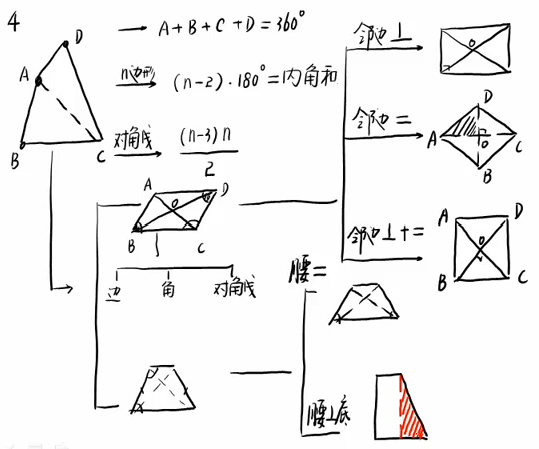 4
D
A
B
C
→ A+B+C+D=360°
n边形
(n-2)·180°=内角和
对角线
(n-3)n
2
A
D
O
B
C
边 角 对角线
邻边⊥
O
邻边=
D
A
O
C
B
邻边⊥+=
A
D
O
B
C
腰=
腰⊥底